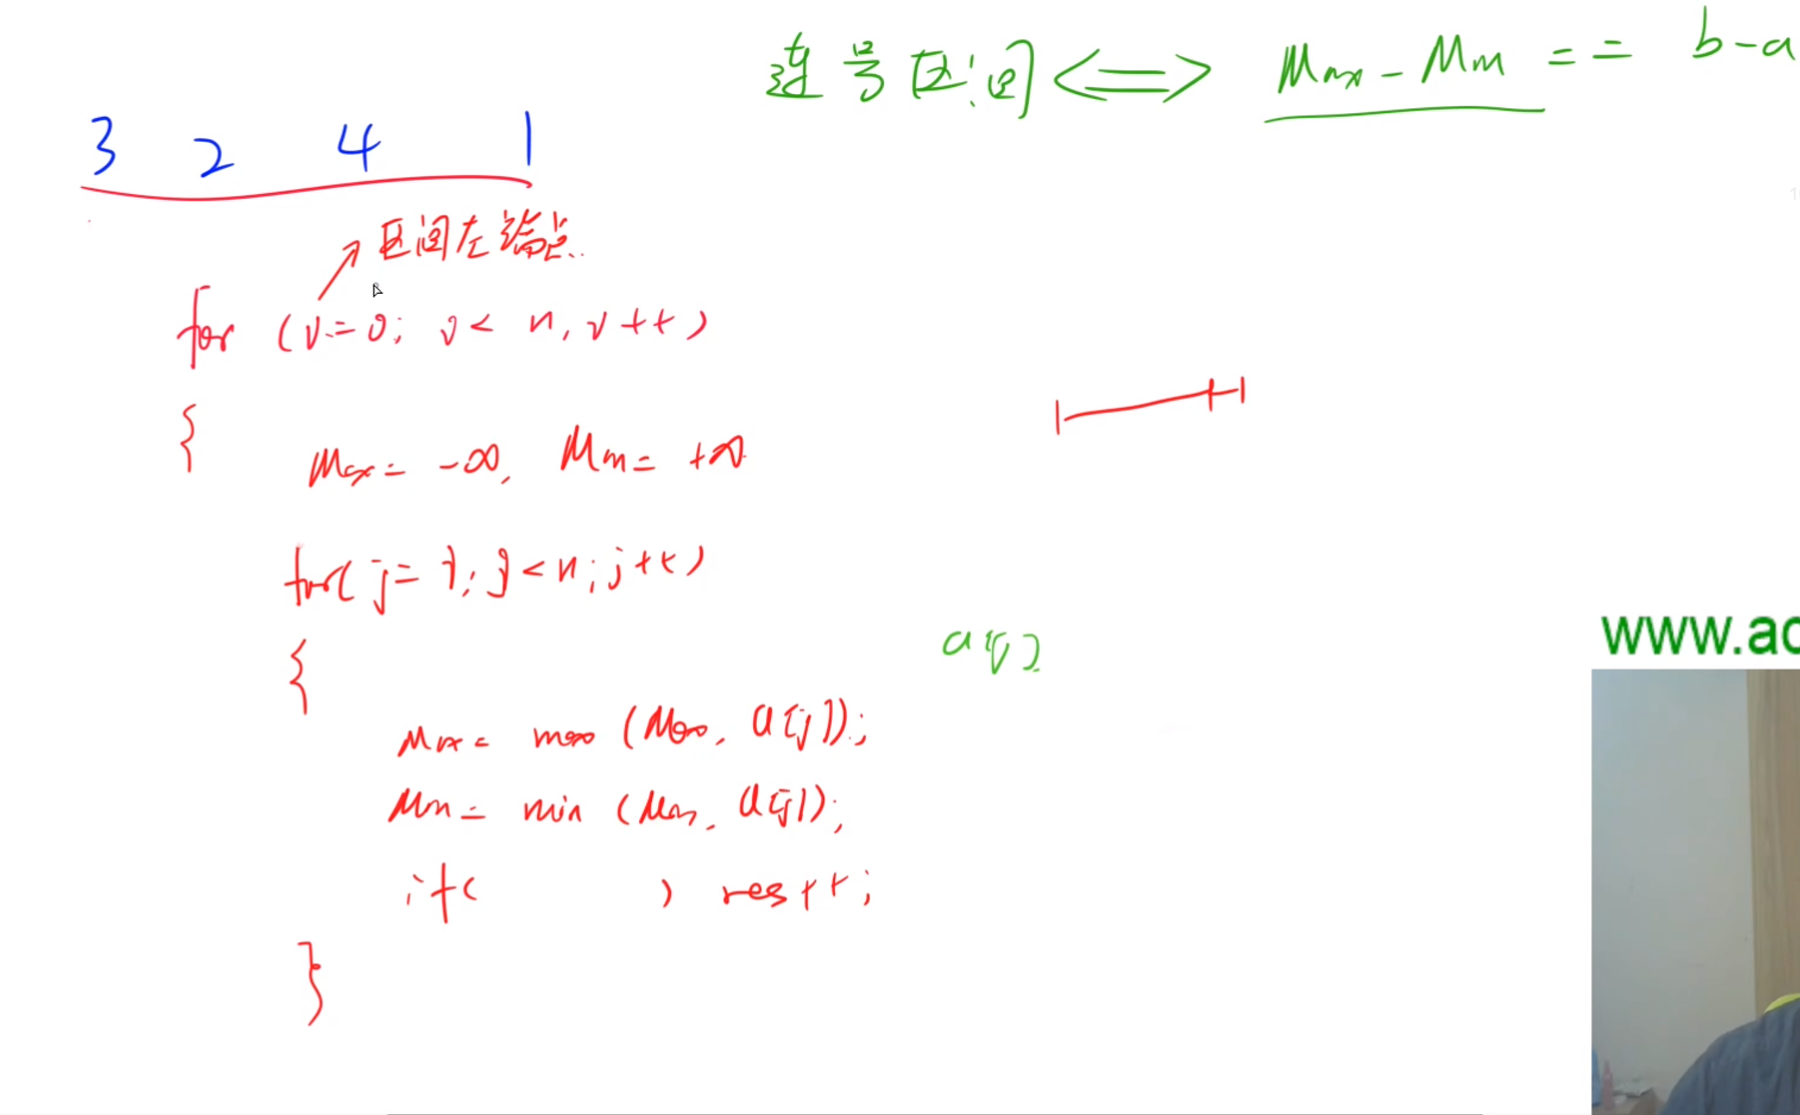 连号区间 <=> Max - Min == b-a
3 2 4 1
区间左端点
for (i=0; i< n, i++)
{
Max = -∞, Min = +∞
for( j= i; j<n; j++)
{
a[j]
Max = max (Max, a[j]);
Min = min (Min, a[j]);
if( ) res++;
}
www.ac